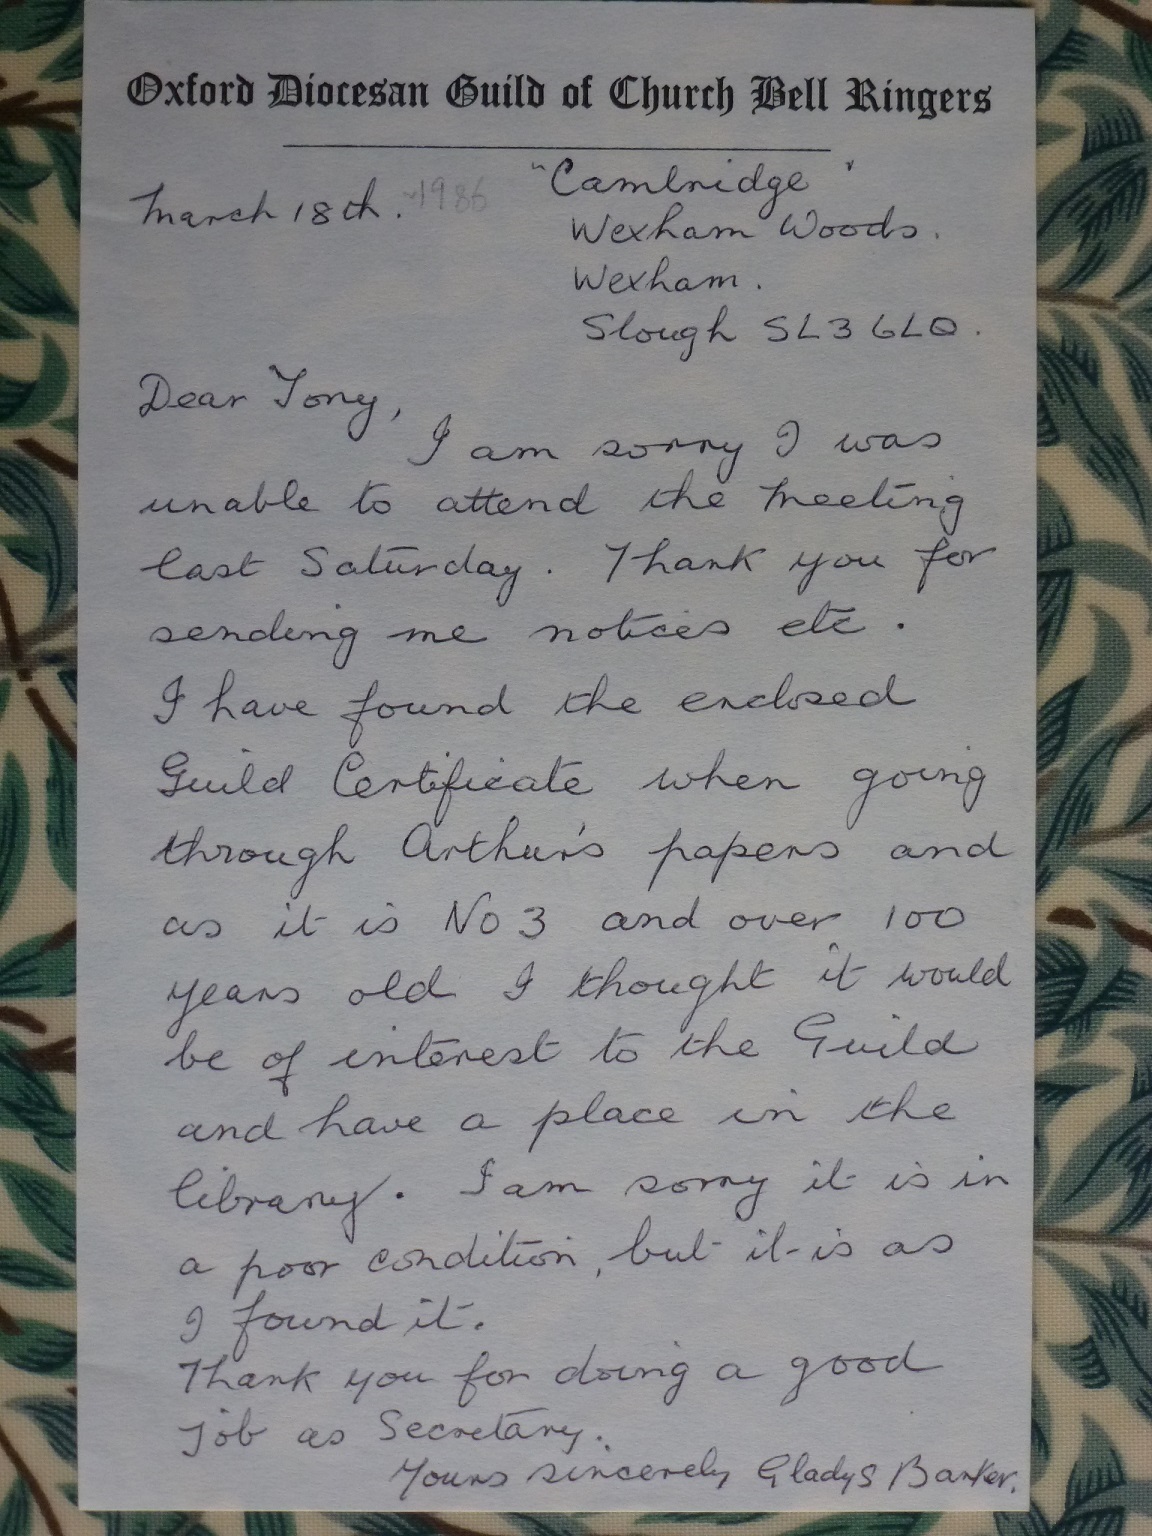 Oxford Diocesan Guild of Church Bell Ringers
"Cambridge"
March 18th. 1986
Wexham Woods.
Wexham.
Slough SL3 6LQ.
Dear Tony,
I am sorry I was
unable to attend the meeting
last Saturday. Thank you for
sending me notices etc.
I have found the enclosed
Guild Certificate when going
through Arthur's papers and
as it is No 3 and over 100
years old I thought it would
be of interest to the Guild
and have a place in the
library. I am sorry it is in
a poor condition, but it is as
I found it.
Thank you for doing a good
job as Secretary.
Yours sincerely Gladys Barker.